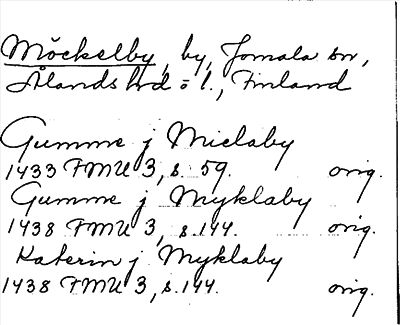 Möckelby, by, Jomala sn,
Ålands hd o l., Finland
Gumme j Mielaby
1433 FMU 3, s. 59. orig.
Gumme j Myklaby
1438 FMU 3, s. 144. orig.
Katerin j Myklaby
1438 FMU 3, s. 144. orig.